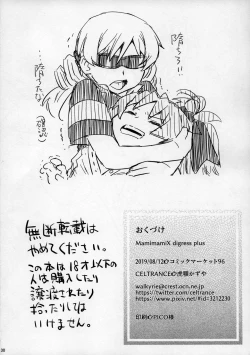 堕ちろ!!
堕ちたな。
(確認)
無断転載は
やめてください。
この本は18才以下の
人は購入したり
譲渡されたり
拾ったりしては
いけません。
おくづけ
MamimamiX digress plus
2019/08/12@コミックマーケット96
CELTRANCE@虎騒かずや
walkyrie@crest.ocn.ne.jp
https://twitter.com/celtrance
https://www.pixiv.net/#id=3212230
印刷@PICO様
30